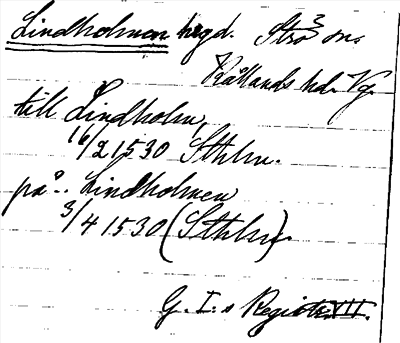 Lindholmen hrgd. Strö sn.
Kållands hd. Vg.
till Lindholm,
16/2 1530 Sthlm.
på.. Lindholmen
3/4 1530 (Sthlm).
G. I:s Registr. VII.